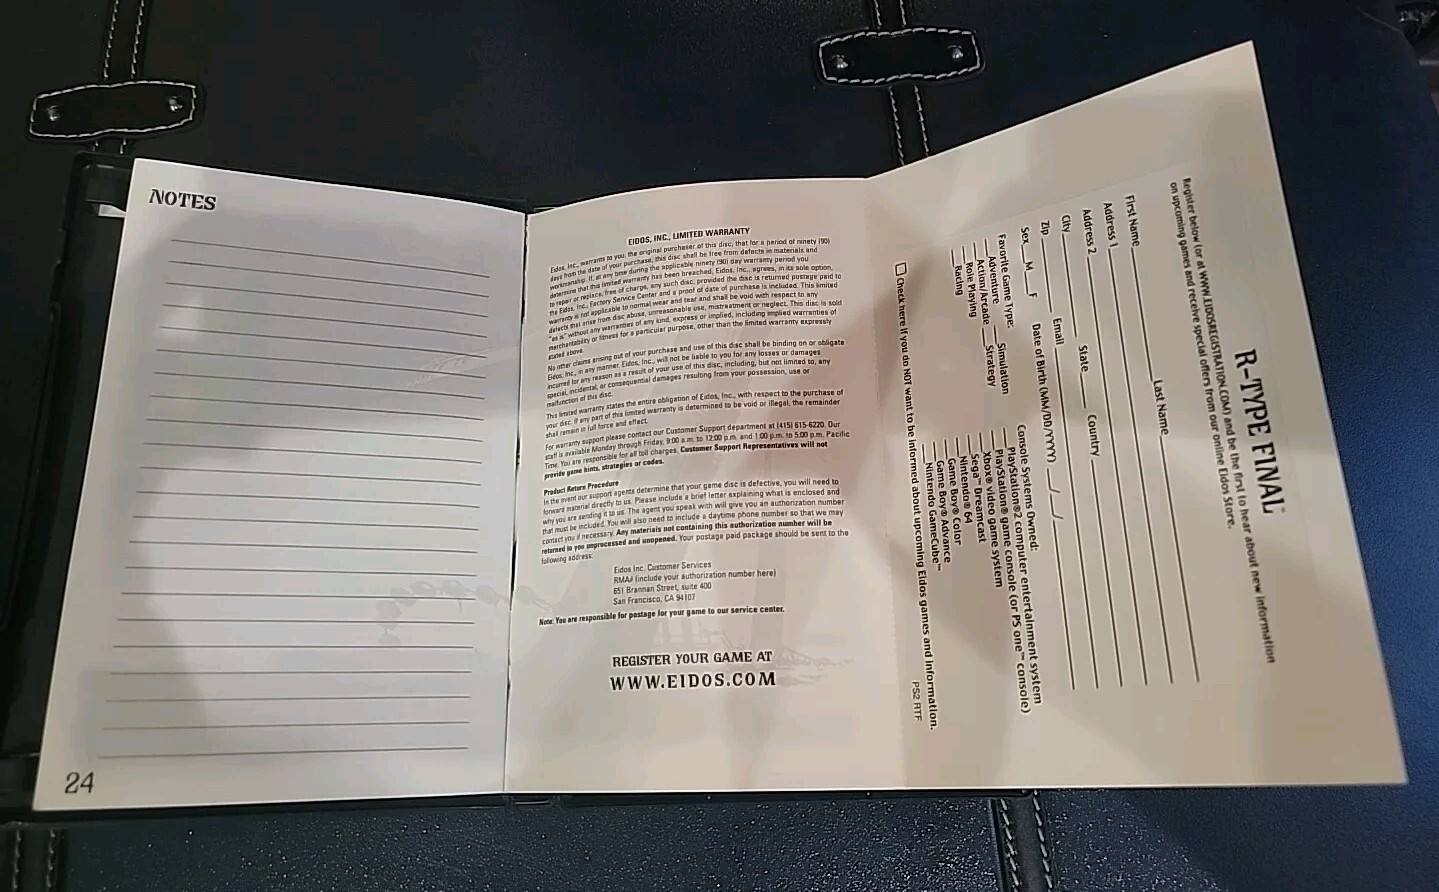 NOTES
24
EIDOS, INC., LIMITED WARRANTY
Eidos, Inc., warrants to you, the original purchaser of this disc, that for a period of ninety (90)
days from the date of your purchase, this disc shall be free from defects in materials and
workmanship. If, at any time during the applicable ninety (90) day warranty period you
determine that this limited warranty has been breached, Eidos, Inc., agrees, in its sole option,
to repair or replace, free of charge, any such disc, provided the disc is returned postage paid to
the Eidos, Inc., Factory Service Center and a proof of date of purchase is included. This limited
warranty is not applicable to normal wear and tear and shall be void with respect to any
defects that arise from disc abuse, unreasonable use, mistreatment or neglect. This disc is sold
"as is" without any warranties of any kind, express or implied, including implied warranties of
merchantability or fitness for a particular purpose, other than the limited warranty expressly
stated above.
No other claims arising out of your purchase and use of this disc shall be binding on or obligate
Eidos, Inc., in any manner. Eidos, Inc., will not be liable to you for any losses or damages
incurred for any reason as a result of your use of this disc, including, but not limited to, any
special, incidental, or consequential damages resulting from your possession, use or
malfunction of this disc.
This limited warranty states the entire obligation of Eidos, Inc., with respect to the purchase of
your disc. If any part of this limited warranty is determined to be void or illegal, the remainder
shall remain in full force and effect.
For warranty support please contact our Customer Support department at (415) 615-6220. Our
staff is available Monday through Friday, 9:00 a.m. to 12:00 p.m. and 1:00 p.m. to 5:00 p.m. Pacific
Time. You are responsible for all toll charges. Customer Support Representatives will not
provide game hints, strategies or codes.
Product Return Procedure
In the event our support agents determine that your game disc is defective, you will need to
forward material directly to us. Please include a brief letter explaining what is enclosed and
why you are sending it to us. The agent you speak with will give you an authorization number
that must be included. You will also need to include a daytime phone number so that we may
contact you if necessary. Any materials not containing this authorization number will be
returned to you unprocessed and unopened. Your postage paid package should be sent to the
following address:
Eidos Inc. Customer Services
RMA# (include your authorization number here)
651 Brannan Street, suite 400
San Francisco, CA 94107
Note: You are responsible for postage for your game to our service center.
REGISTER YOUR GAME AT
WWW.EIDOS.COM
R-TYPE FINAL™
Register below (or at WWW.EIDOSREGISTRATION.COM) and be the first to hear about new information
on upcoming games and receive special offers from our online Eidos Store.
First Name Last Name
Address 1
Address 2
City State Country
Zip Email
Sex M F Date of Birth (MM/DD/YYYY) / /
Favorite Game Type: Console Systems Owned:
Adventure Simulation PlayStation®2 computer entertainment system
Action/Arcade Strategy PlayStation® game console (or PS one™ console)
Role Playing Xbox® video game system
Racing Sega™ Dreamcast
Nintendo® 64
Game Boy® Color
Game Boy® Advance
Nintendo GameCube™
Check here if you do NOT want to be informed about upcoming Eidos games and information.
PS2 RTF